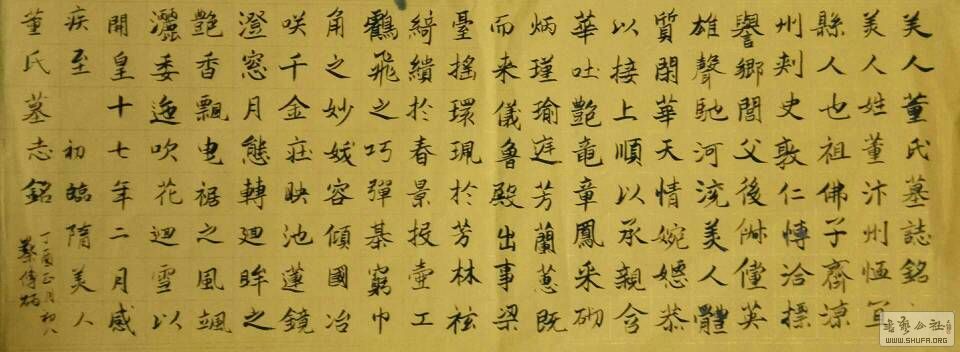 美人董氏墓誌銘
美人姓董汴州恤宜
縣人也祖佛子齊涼
州刾史敦仁愽洽摽
譽鄉閭父後脩僮英
雄聲馳河流美人體
質閑華天情婉嫕恭
以接上順以承親含
華吐艷竜章鳳采砌
炳瑾瑜庭芳蘭蕙既
而来儀魯殿出事梁
臺搖環珮於芳林袨
綺繢於春景投壺工
鶴飛之巧彈棊窮巾
角之妙妖容傾國冶
咲千金莊映池蓮鏡
澄窓月態轉迴眸之
艷香飄曳裾之風颯
灑委迤吹花迴雪以
開皇十七年二月感
疾至 初臨隋美人
董氏墓志銘
丁酉正月初八
WWW.SHUFA.ORG